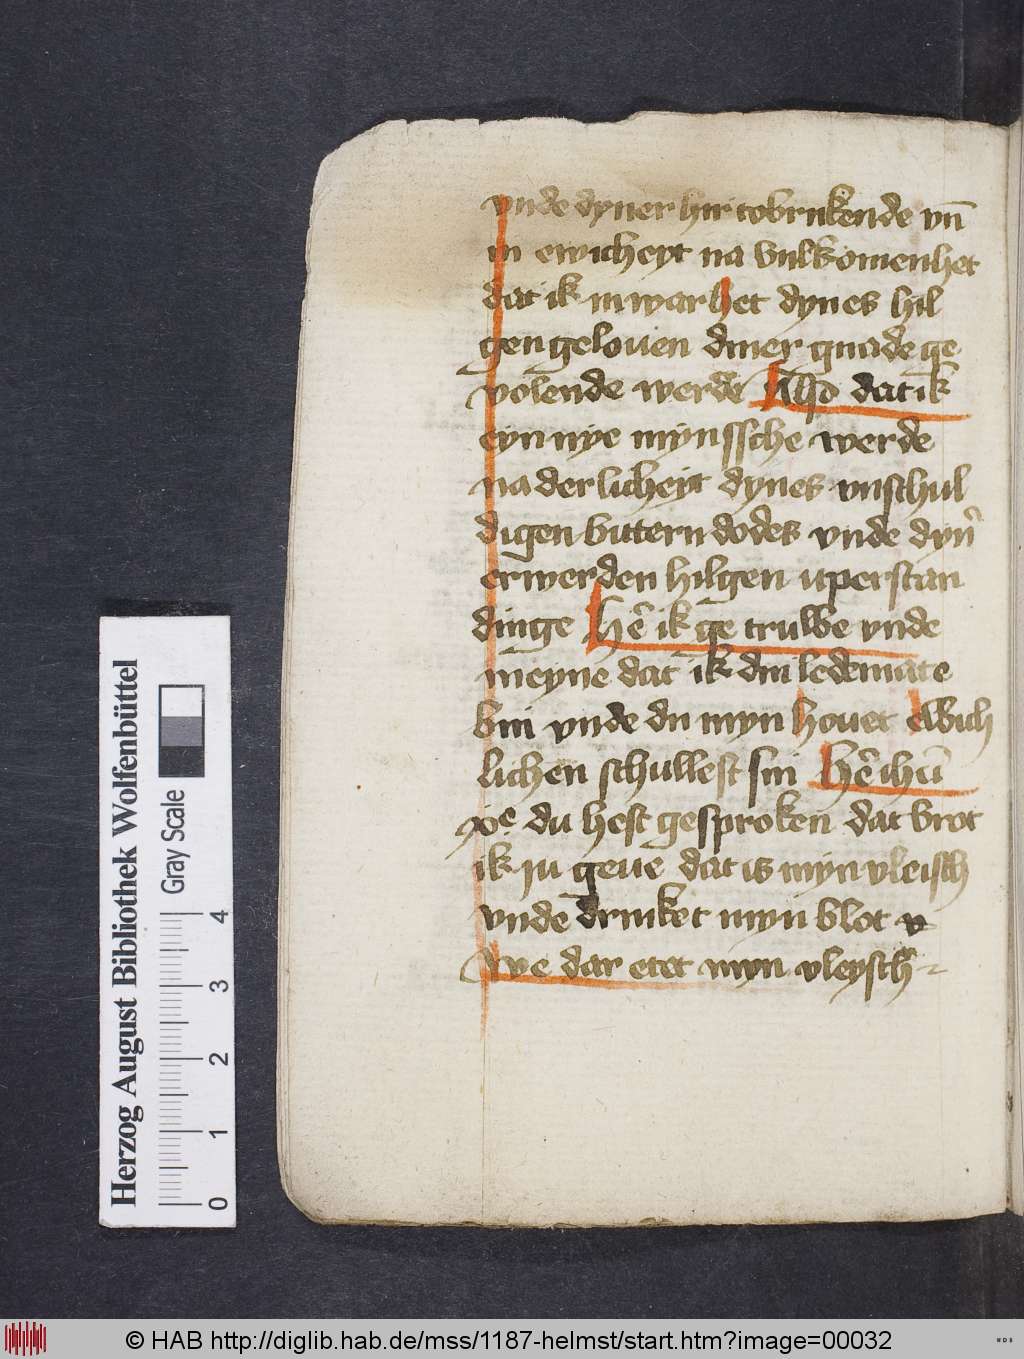 vnde dyner hir tobrukende vn̄
in ewicheyt na vulkomenhet
dat ik in warhet dynes hil
gen gelouen diner gnade ge
volende werde Also dat ik
eyn nye mynssche werde
na der licheyt dynes vnschul
digen bittern dodes vnde dyn̉
erwerden hilgen uperstan
dinge Hē ik ge truwe vnde
meyne dat ik din ledemate
bin vnde du myn houet ewich
lichen schullest sin Hē ihū
xp̄e du hest gesproken dat brot
ik iu geue dat is myn vleisch
vnde drinket myn blot v
we dar etet myn vleysch
Herzog August Bibliothek Wolfenbüttel
Gray Scale
0 1 2 3 4
© HAB http://diglib.hab.de/mss/1187-helmst/start.htm?image=00032
WDB